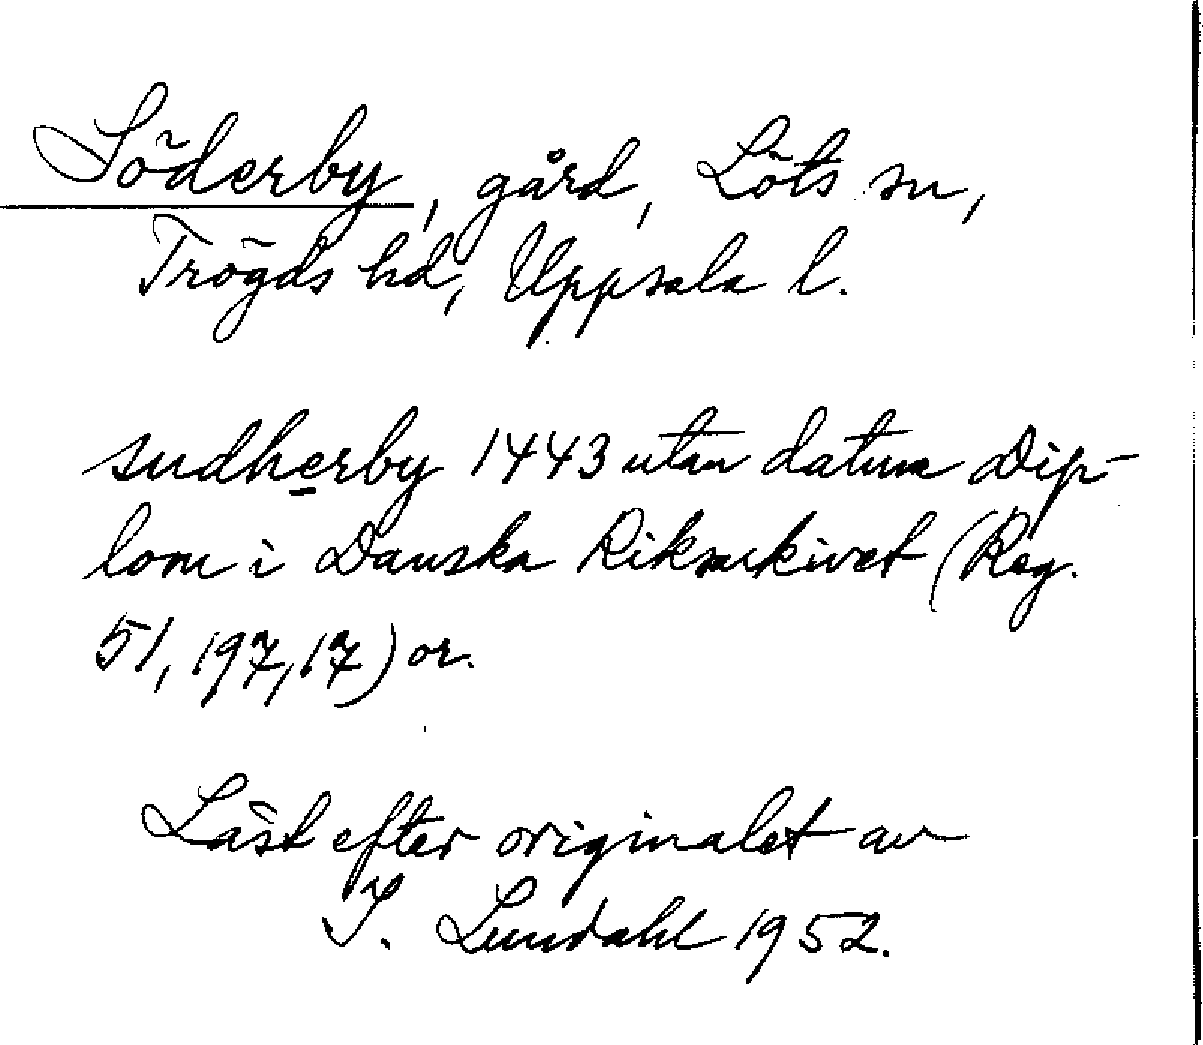 Söderby, gård, Löts sn,
Trögds hd, Uppsala l.
sudherby 1443 utan datum Dip-
lom i Danska Riksarkivet (Reg.
51, 197, 17) or.
Läst efter originalet av
I. Lundahl 1952.